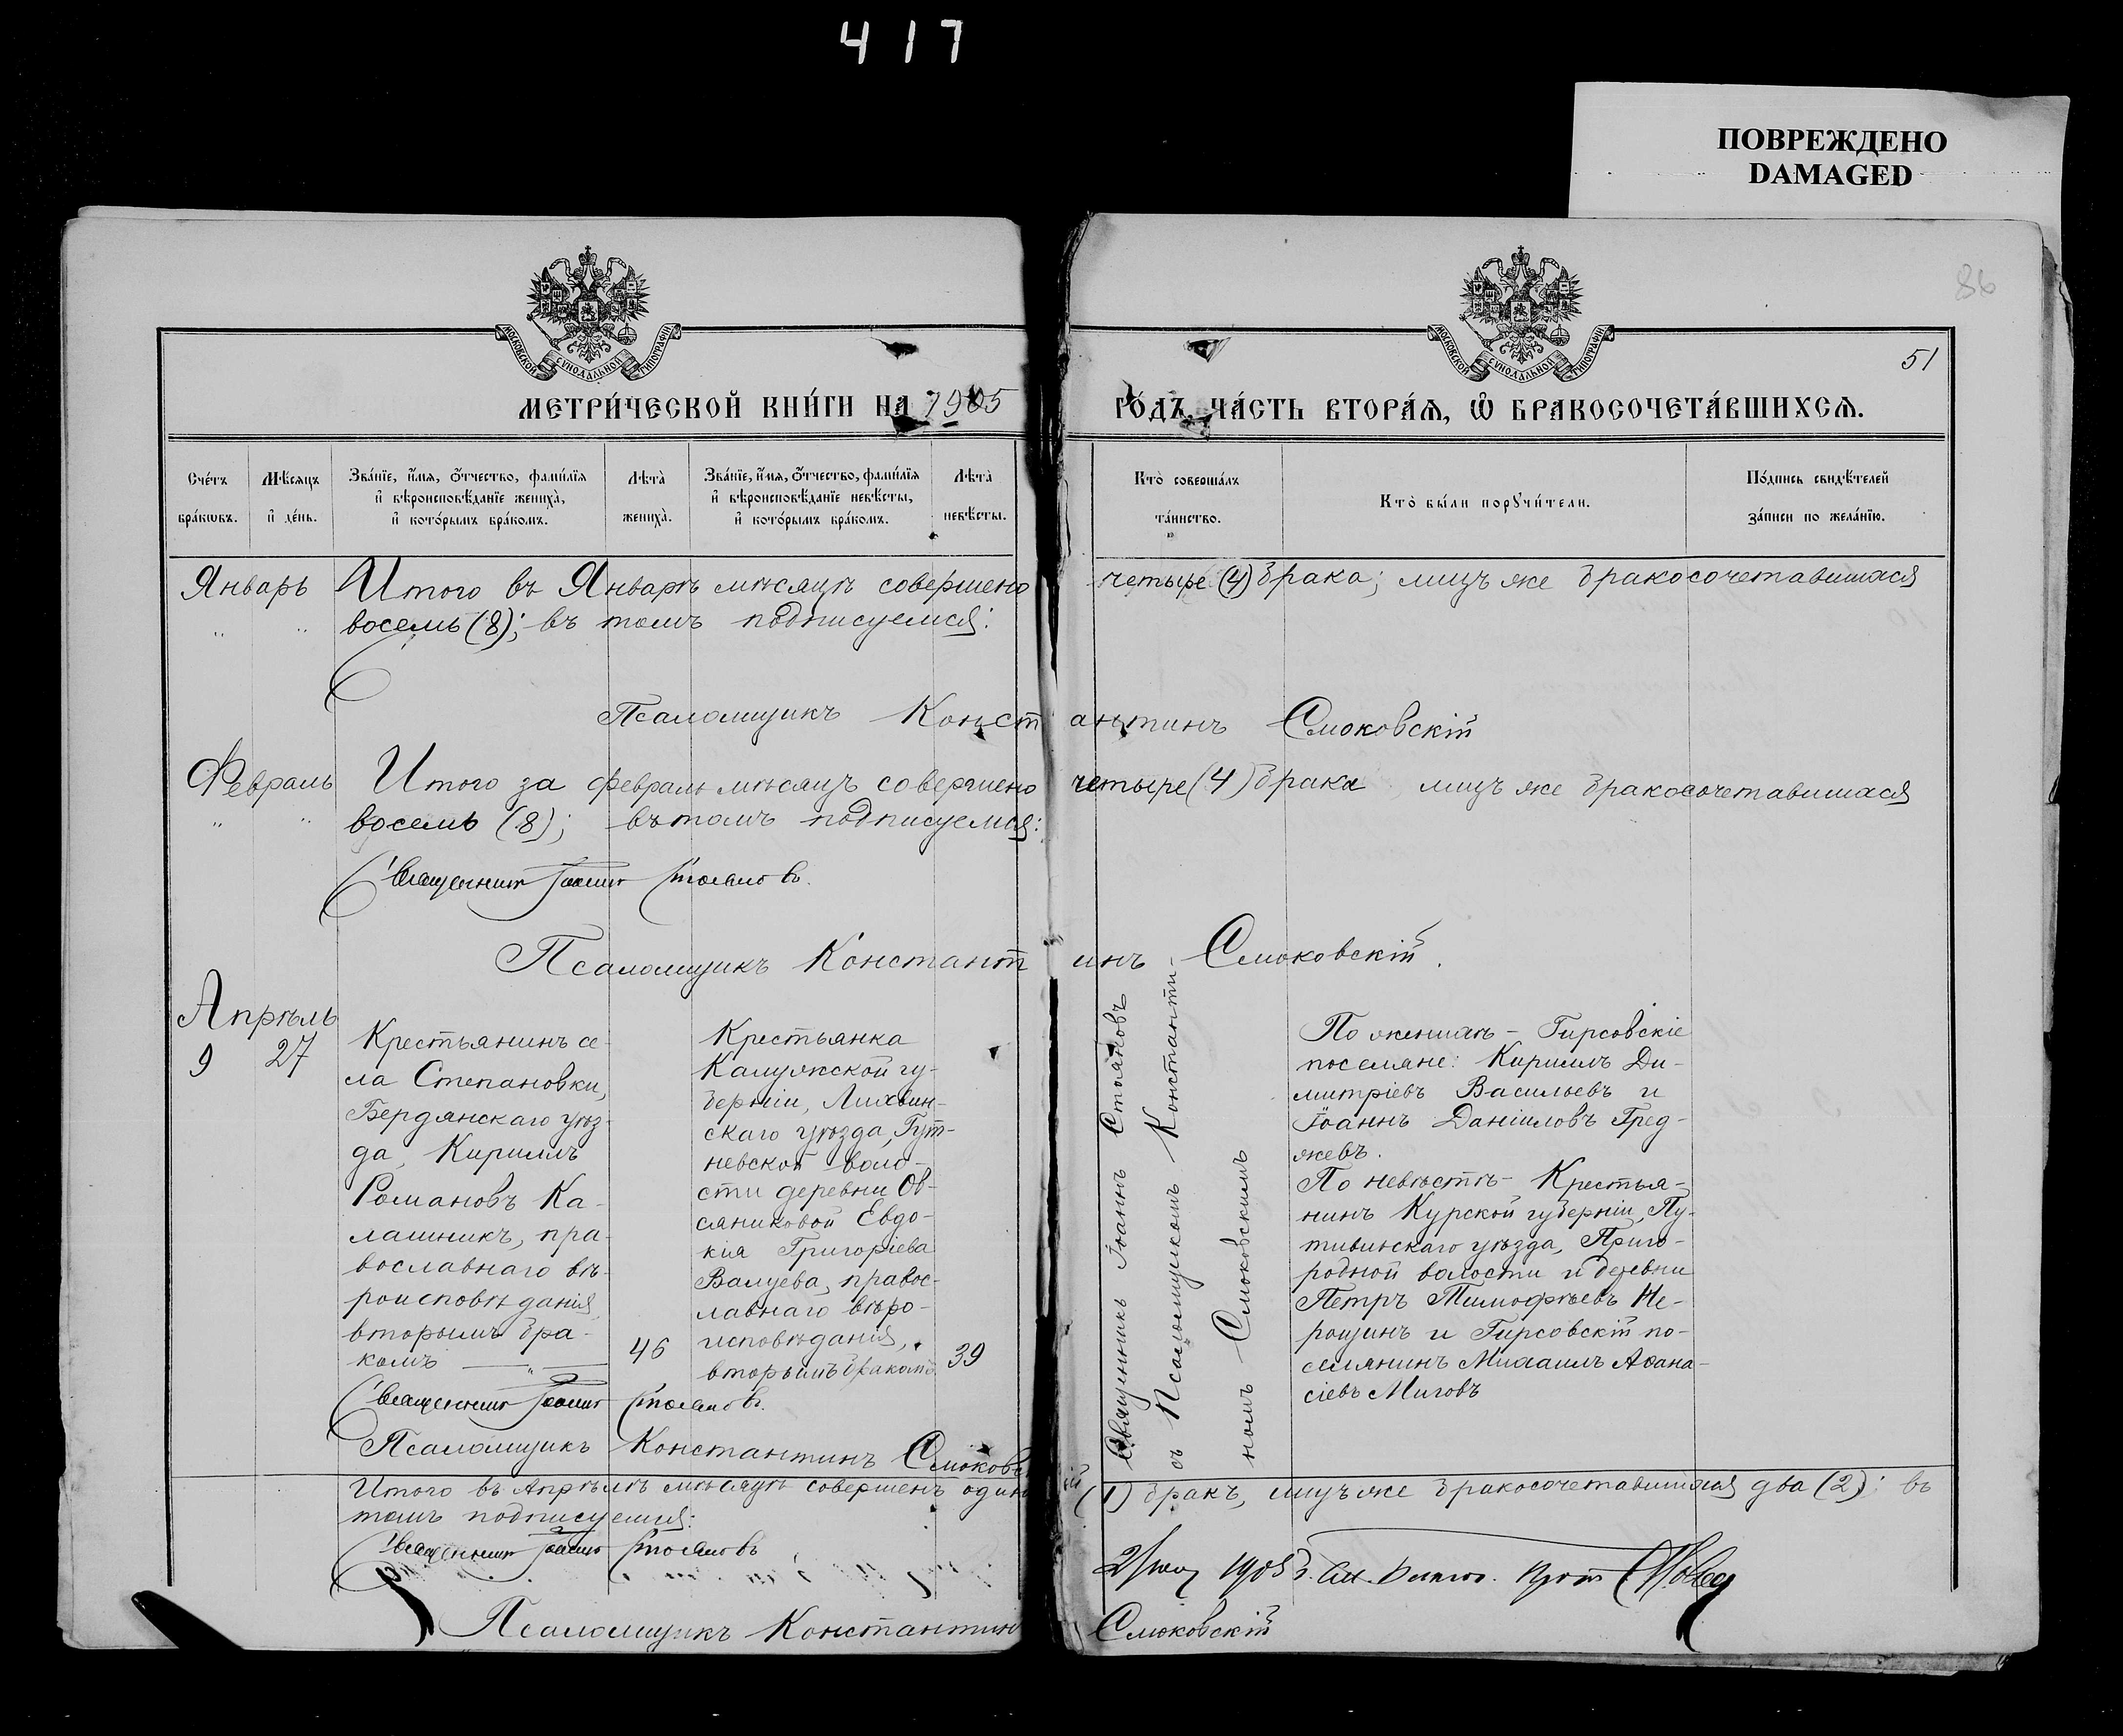 417
ПОВРЕЖДЕНО
DAMAGED
86
51
МОСКОВСКОЙ СѴНОДАЛЬНОЙ ТИПОГРАФІИ
МОСКОВСКОЙ СѴНОДАЛЬНОЙ ТИПОГРАФІИ
МЕТРИ́ЧЕСКОЙ КНИ́ГИ НА 1905
ГО́ДЪ, ЧА́СТЬ ВТОРА́Я, Ѡ҆ БРАКОСОЧЕТА́ВШИХСѦ.
Сче́тъ
бра́кѡвъ.
Мѣ́сяцъ
и҆ де́нь.
Зва́нїе, и҆́мя, ѻ҆́тчество, фами́лїя
и҆ вѣроисповѣ́данїе жениха̀,
и҆ кото́рымъ бра́комъ.
Лѣта̀
жениха̀.
Зва́нїе, и҆́мя, ѻ҆́тчество, фами́лїя
и҆ вѣроисповѣ́данїе невѣ́сты,
и҆ кото́рымъ бра́комъ.
Лѣта̀
невѣ́сты.
Кто̀ соверша́лъ
та́инство.
Кто̀ бы́ли порꙋчи́тели.
По́дпись свидѣ́телей
за́писи по жела́нїю.
Январь Итого въ Январѣ мѣсяцѣ совершено четыре (4) брака; лицъ же бракосочетавшихся
" " восемь (8); въ томъ подписуемся:
Псаломщикъ Константинъ Смоковскій
Февраль Итого за февраль мѣсяцъ совершено четыре (4) брака лицъ же бракосочетавшихся
" " восемь (8); въ томъ подписуемся:
Священникъ Іоаннъ Стояновъ.
Псаломщикъ Константинъ Смоковскій.
Апрѣль
9 27
Крестьянинъ се-
ла Степановки,
Бердянскаго уѣз-
да, Кириллъ
Романовъ Ка-
лашникъ, пра-
вославнаго вѣ-
роисповѣданія,
вторымъ бра-
комъ — " —
46
Крестьянка
Калужской гу-
берніи, Лихвин-
скаго уѣзда, Гут-
невской воло-
сти деревни Ов-
сяниковой Евдо-
кія Григоріева
Валуева, правос-
лавнаго вѣро-
исповѣданія,
вторымъ бракомъ.
39
Священникъ Іоаннъ Стояновъ
съ Псаломщикомъ Константи-
номъ Смоковскимъ
По женихѣ – Гирсовскіе
поселяне: Кириллъ Ди-
митріевъ Васильевъ и
Іоаннъ Даніиловъ Гред-
жевъ.
По невѣстѣ – Крестья-
нинъ Курской губерніи, Пу-
тивльскаго уѣзда, Приго-
родной волости и деревни
Петръ Тимофѣевъ Не-
рощинъ и Гирсовскій по-
селянинъ Михаилъ Аѳана-
сіевъ Миговъ
Священникъ Іоаннъ Стояновъ.
Псаломщикъ Константинъ Смоковскій
Итого въ Апрѣлѣ мѣсяцѣ совершенъ одинъ (1) бракъ, лицъ же бракосочетавшихся два (2): въ
томъ подписуемся:
Священникъ Іоаннъ Стояновъ
1905 г.
Псаломщикъ Константинъ Смоковскій